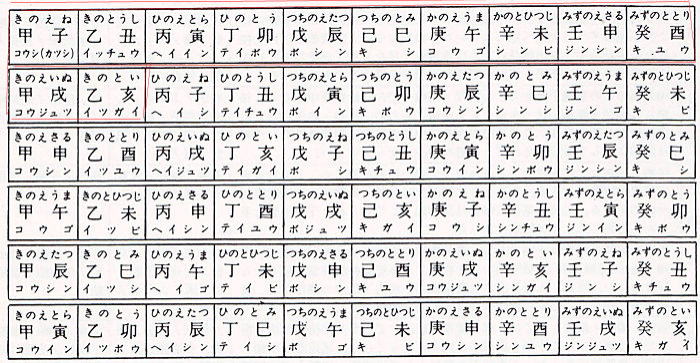 きのえね きのとうし ひのえとら ひのとう つちのえたつ つちのとみ かのえうま かのとひつじ みずのえさる みずのととり
甲子 乙丑 丙寅 丁卯 戊辰 己巳 庚午 辛未 壬申 癸酉
コウシ(カッシ) イッチュウ ヘイイン テイボウ ボシン キシ コウゴ シンビ ジンシン キユウ
きのえいぬ きのとい ひのえね ひのとうし つちのえとら つちのとう かのえたつ かのとみ みずのえうま みずのとひつじ
甲戌 乙亥 丙子 丁丑 戊寅 己卯 庚辰 辛巳 壬午 癸未
コウジュツ イツガイ ヘイシ テイチュウ ボイン キボウ コウシン シンシ ジンゴ キビ
きのえさる きのととり ひのえいぬ ひのとい つちのえね つちのとうし かのえとら かのとう みずのえたつ みずのとみ
甲申 乙酉 丙戌 丁亥 戊子 己丑 庚寅 辛卯 壬辰 癸巳
コウシン イツユウ ヘイジュツ テイガイ ボシ キチュウ コウイン シンボウ ジンシン キシ
きのえうま きのとひつじ ひのえさる ひのととり つちのえいぬ つちのとい かのえね かのとうし みずのえとら みずのとう
甲午 乙未 丙申 丁酉 戊戌 己亥 庚子 辛丑 壬寅 癸卯
コウゴ イツビ ヘイシン テイユウ ボジュツ キガイ コウシ シンチュウ ジンイン キボウ
きのえたつ きのとみ ひのえうま ひのとひつじ つちのえさる つちのととり かのえいぬ かのとい みずのえね みずのとうし
甲辰 乙巳 丙午 丁未 戊申 己酉 庚戌 辛亥 壬子 癸丑
コウシン イツシ ヘイゴ テイビ ボシン キユウ コウジュツ シンガイ ジンシ キチュウ
きのえとら きのとう ひのえたつ ひのとみ つちのえうま つちのとひつじ かのえさる かのととり みずのえいぬ みずのとい
甲寅 乙卯 丙辰 丁巳 戊午 己未 庚申 辛酉 壬戌 癸亥
コウイン イツボウ ヘイシン テイシ ボゴ キビ コウシン シンユウ ジンジュツ キガイ